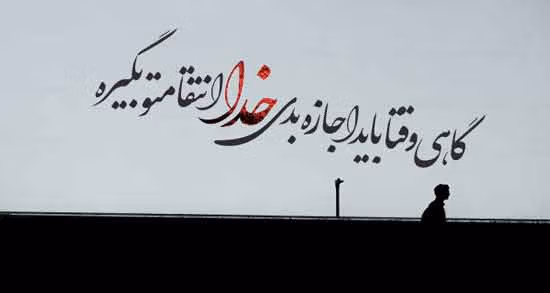 گاهی وقتا باید اجازه بدی خدا انتقامتو بگیره